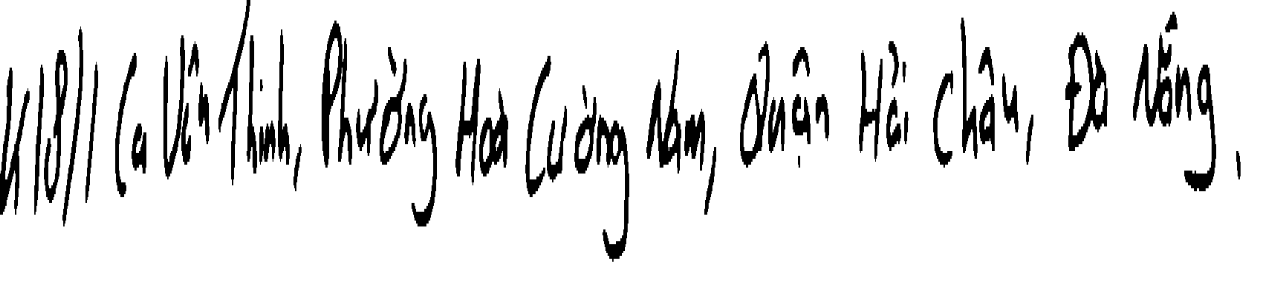 K18/1 Ca Văn Thỉnh, Phường Hoà Cường Nam, Quận Hải Châu, Đà Nẵng.